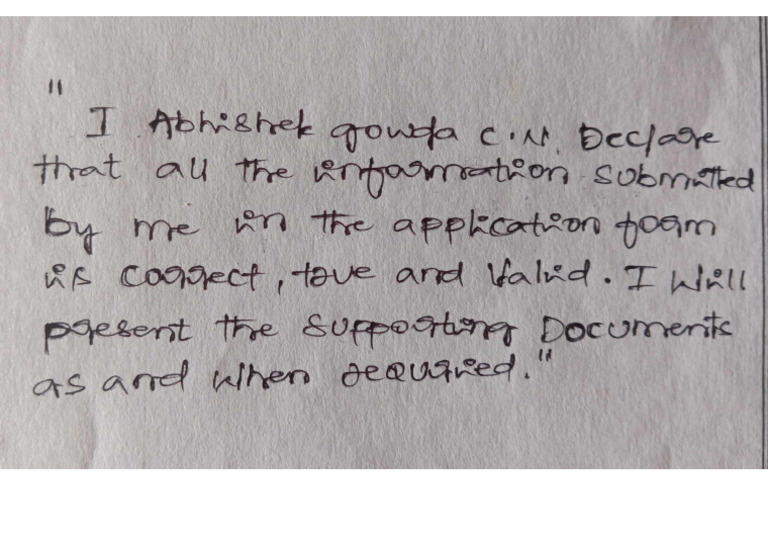 "
I Abhishek gowda C.N. Declare
that all the information submitted
by me in the application form
is correct, true and Valid. I Will
present the Supporting Documents
as and when required."